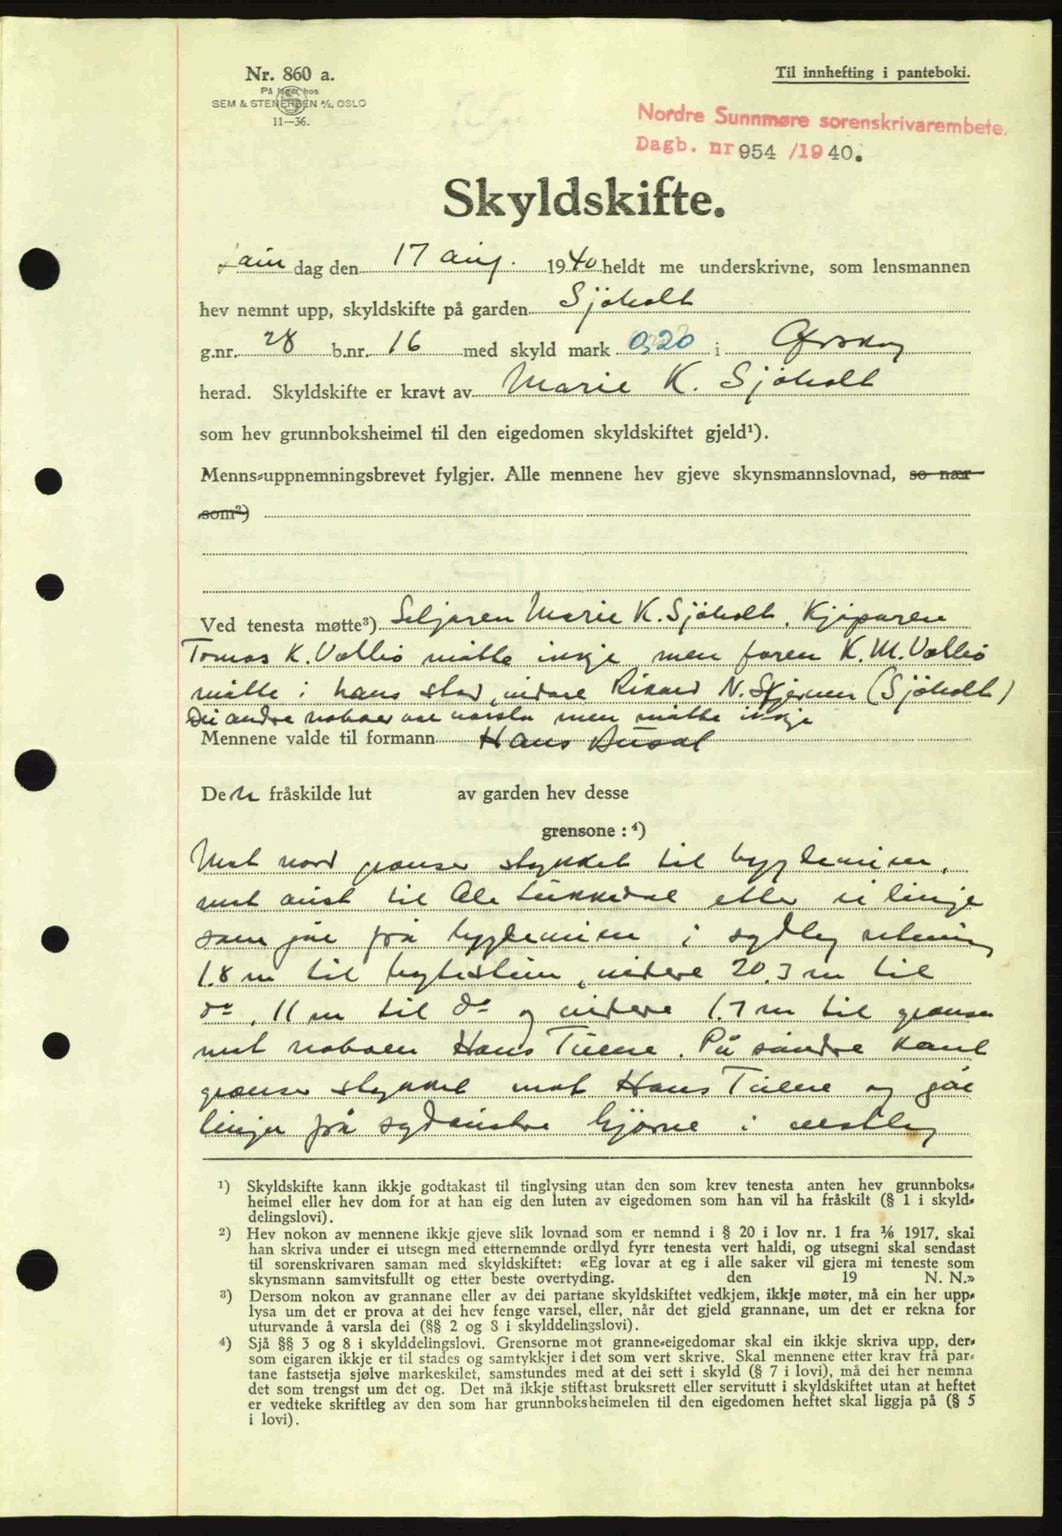 Nr. 860 a.
På lager hos
SEM & STENERSEN A/S, OSLO
11—36.
Til innhefting i panteboki.
Nordre Sunnmøre sorenskrivarembete.
Dagb. nr 954 /1940.
Skyldskifte.
Laur dag den 17 aug. 1940 heldt me underskrivne, som lensmannen
hev nemnt upp, skyldskifte på garden Sjøholt
g.nr. 28 b.nr. 16 med skyld mark 0,20 i Ørskog
herad. Skyldskifte er kravt av Marie K. Sjøholt
som hev grunnboksheimel til den eigedomen skyldskiftet gjeld¹).
Menns-uppnemningsbrevet fylgjer. Alle mennene hev gjeve skynsmannslovnad, so nær
som²)
Ved tenesta møtte³) Seljaren Marie K. Sjøholt. Kjøparen
Tomas K. Vollsö møtte inkje, men faren K. M. Vollsö
møtte i hans stad, vidare Rikard N. (Sjøholt)
Dei andre naboar var varsla men møtte inkje
Mennene valde til formann Hans
De n fråskilde lut av garden hev desse
grensone: ⁴)
Mot nord grenser stykket til bygdeveien,
mot aust til Ole etter ei linje
som går frå bygdeveien i sydleg retning
1.8 m til bytestein, videre 20.3 m til
do, 11 m til do og vidare 1.7 m til grensen
mot naboen Hans Tuene. På søndre kant
grenser stykket mot Hans Tuene og går
linja frå sydaustre hjørne i vestleg
¹) Skyldskifte kann ikkje godtakast til tinglysing utan den som krev tenesta anten hev grunnboks-
heimel eller hev dom for at han eig den luten av eigedomen som han vil ha fråskilt (§ 1 i skyld-
delingslovi).
²) Hev nokon av mennene ikkje gjeve slik lovnad som er nemnd i § 20 i lov nr. 1 fra ¹/₆ 1917, skal
han skriva under ei utsegn med etternemnde ordlyd fyrr tenesta vert haldi, og utsegni skal sendast
til sorenskrivaren saman med skyldskiftet: «Eg lovar at eg i alle saker vil gjera mi teneste som
skynsmann samvitsfullt og etter beste overtyding. den 19 N. N.»
³) Dersom nokon av grannane eller av dei partane skyldskiftet vedkjem, ikkje møter, må ein her upp-
lysa um det er prova at dei hev fenge varsel, eller, når det gjeld grannane, um det er rekna for
uturvande å varsla dei (§§ 2 og 8 i skylddelingslovi).
⁴) Sjå §§ 3 og 8 i skylddelingslovi. Grensorne mot granne-eigedomar skal ein ikkje skriva upp, der-
som eigaren ikkje er til stades og samtykkjer i det som vert skrive. Skal mennene etter krav frå par-
tane fastsetja sjølve markeskilet, samstundes med at dei sett i skyld (§ 7 i lovi), må dei her nemna
det som trengst um det og. Det må ikkje stiftast bruksrett eller servitutt i skyldskiftet utan at heftet
er vedteke skriftleg av den som har grunnboksheimelen til den eigedomen heftet skal liggja på (§ 5
i lovi).